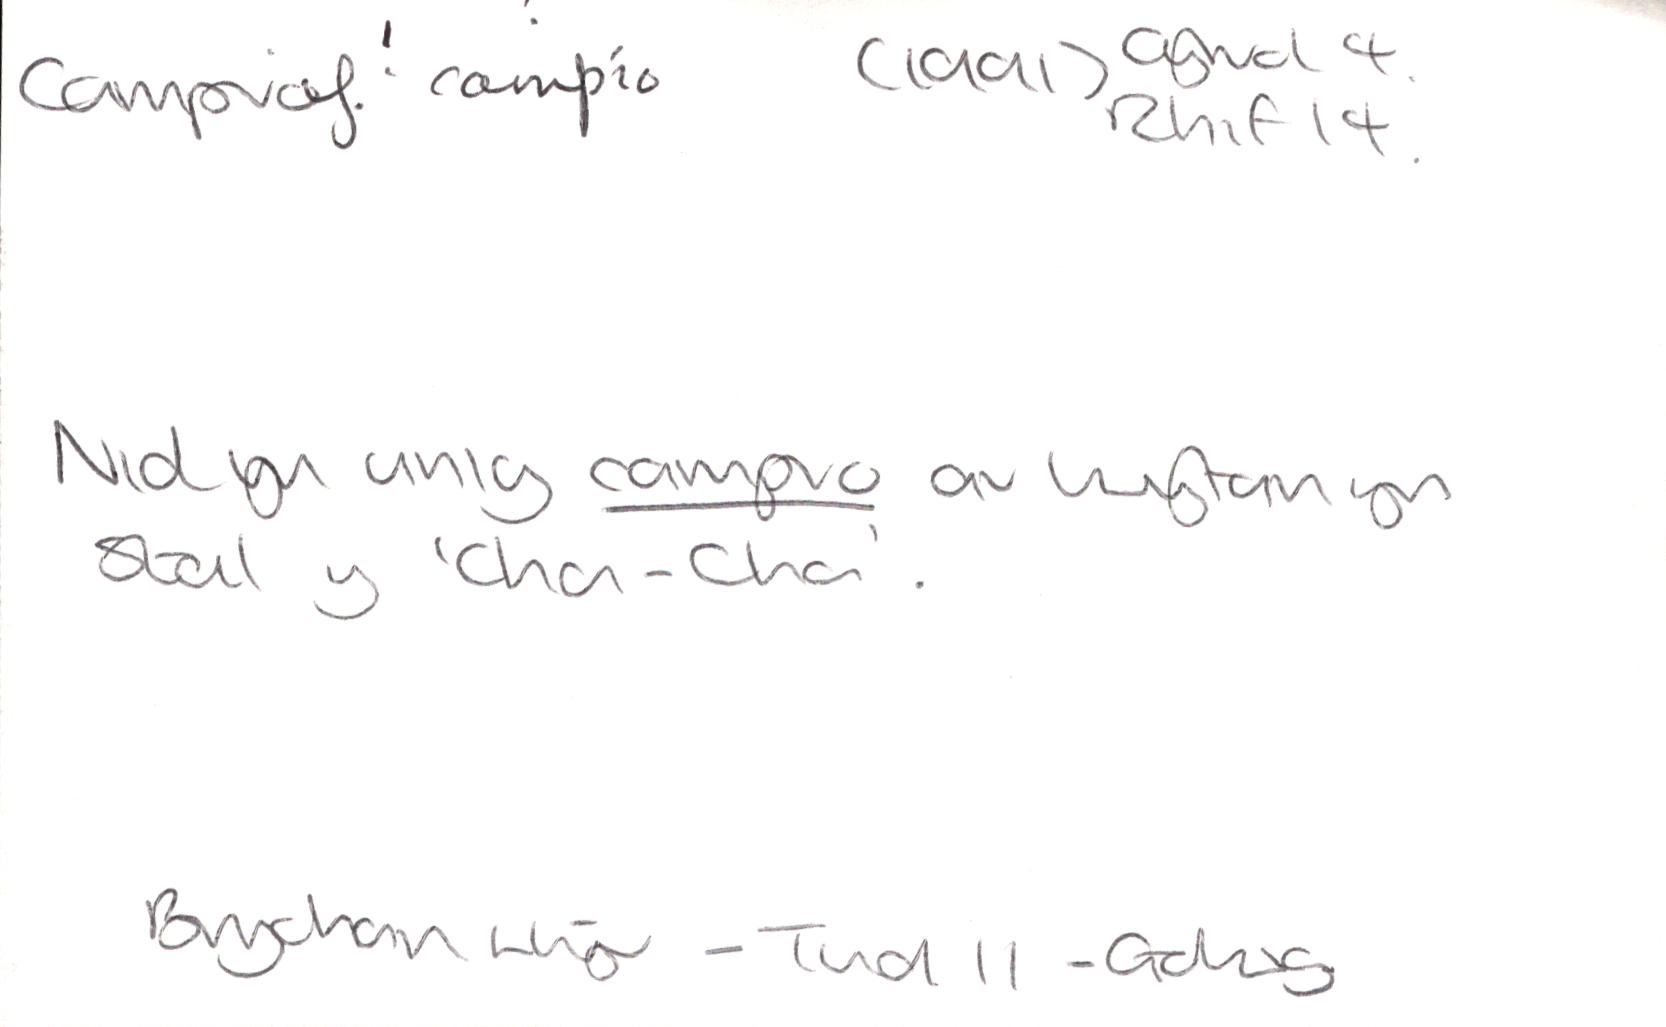 Campiaf: campio (1991) Cyfrol 4.
Rhif 14.
Nid yn unig campio ar lwyfan yn
steil y 'Cha-Cha'.
Brychan Llŷr - Tud 11 - Golwg